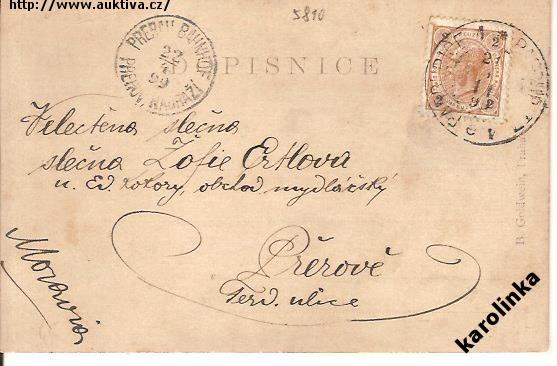 http://www.auktiva.cz/
5810
PRERAU BAHNHOF
22
99
PŘEROV NÁDRAŽÍ
DOPISNICE
Velectěna slečna
slečna Žofie Ertlova
u. Ed. Zokory, obchod mydlářský
Přerově
Ferd. ulice
Morava
B. Goldwein,
karolinka